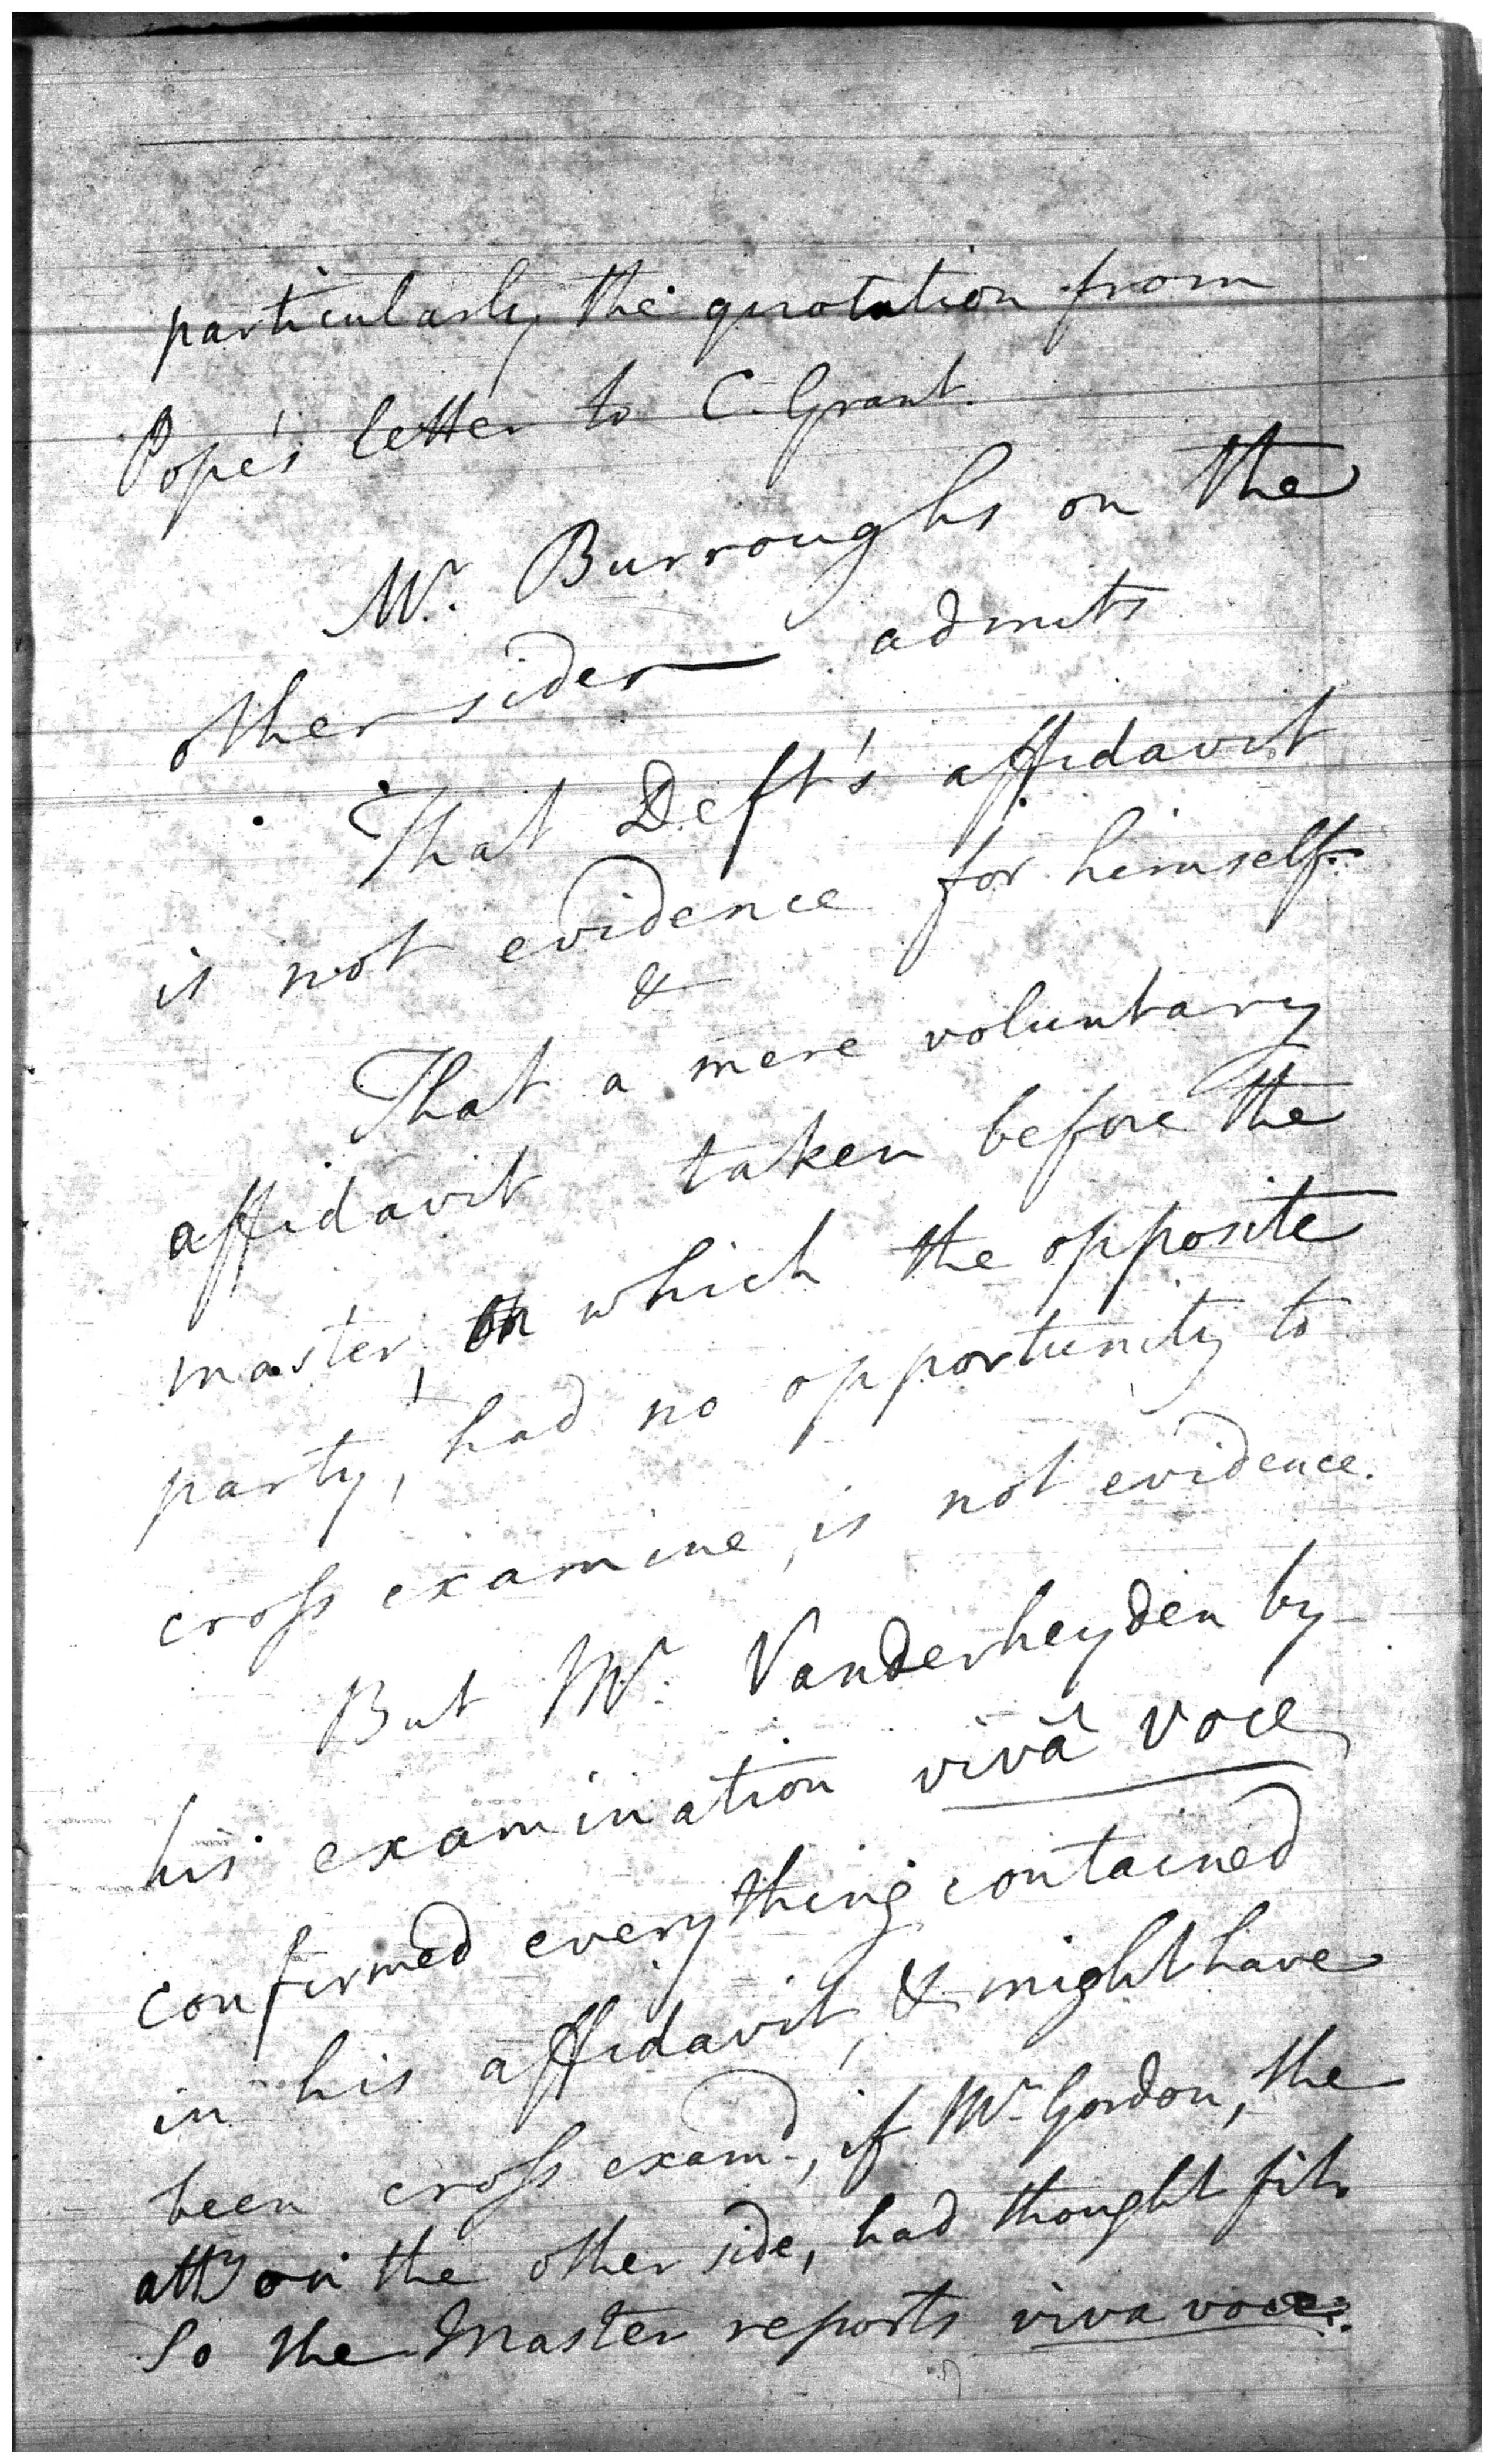 particularly the quotation from
Pope's letter to C. Grant.
Mr. Burroughs on the
other side admits
That Deft's affidavit
is not evidence for himself.
&
That a mere voluntary
affidavit taken before the
master, on which the opposite
party, had no opportunity to
cross examine, is not evidence.
But Mr. Vanderheyden by
his examination vivâ voce
confirmed everything contained
in his affidavit, & might have
been cross examd., if Mr. Gordon, the
atty on the other side, had thought fit.
So the Master reports viva voce.